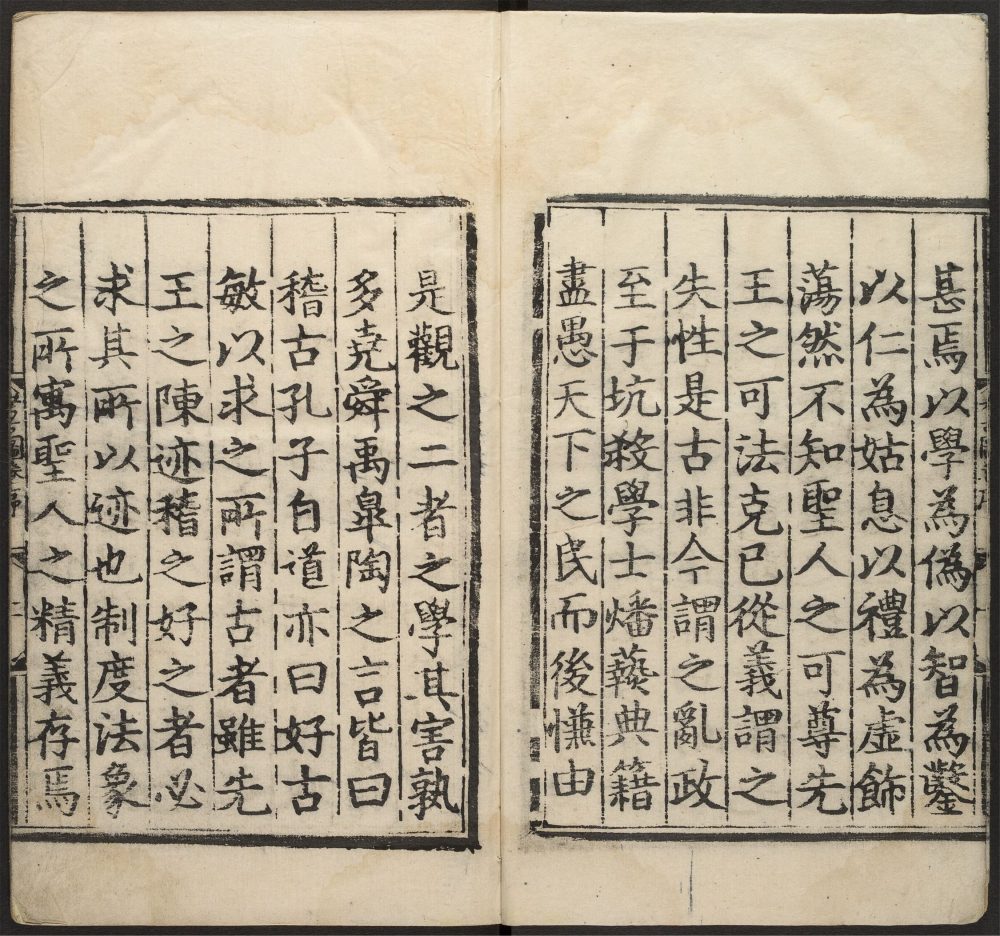 甚焉以學為偽以智為鑿
以仁為姑息以禮為虛飾
蕩然不知聖人之可尊先
王之可法克己從義謂之
失性是古非今謂之亂政
至于坑殺學士燔蓺典籍
盡愚天下之民而後慊由
是觀之二者之學其害孰
多堯舜禹皐陶之言皆曰
稽古孔子自道亦曰好古
敏以求之所謂古者雖先
王之陳迹稽之好之者必
求其所以迹也制度法象
之所寓聖人之精義存焉